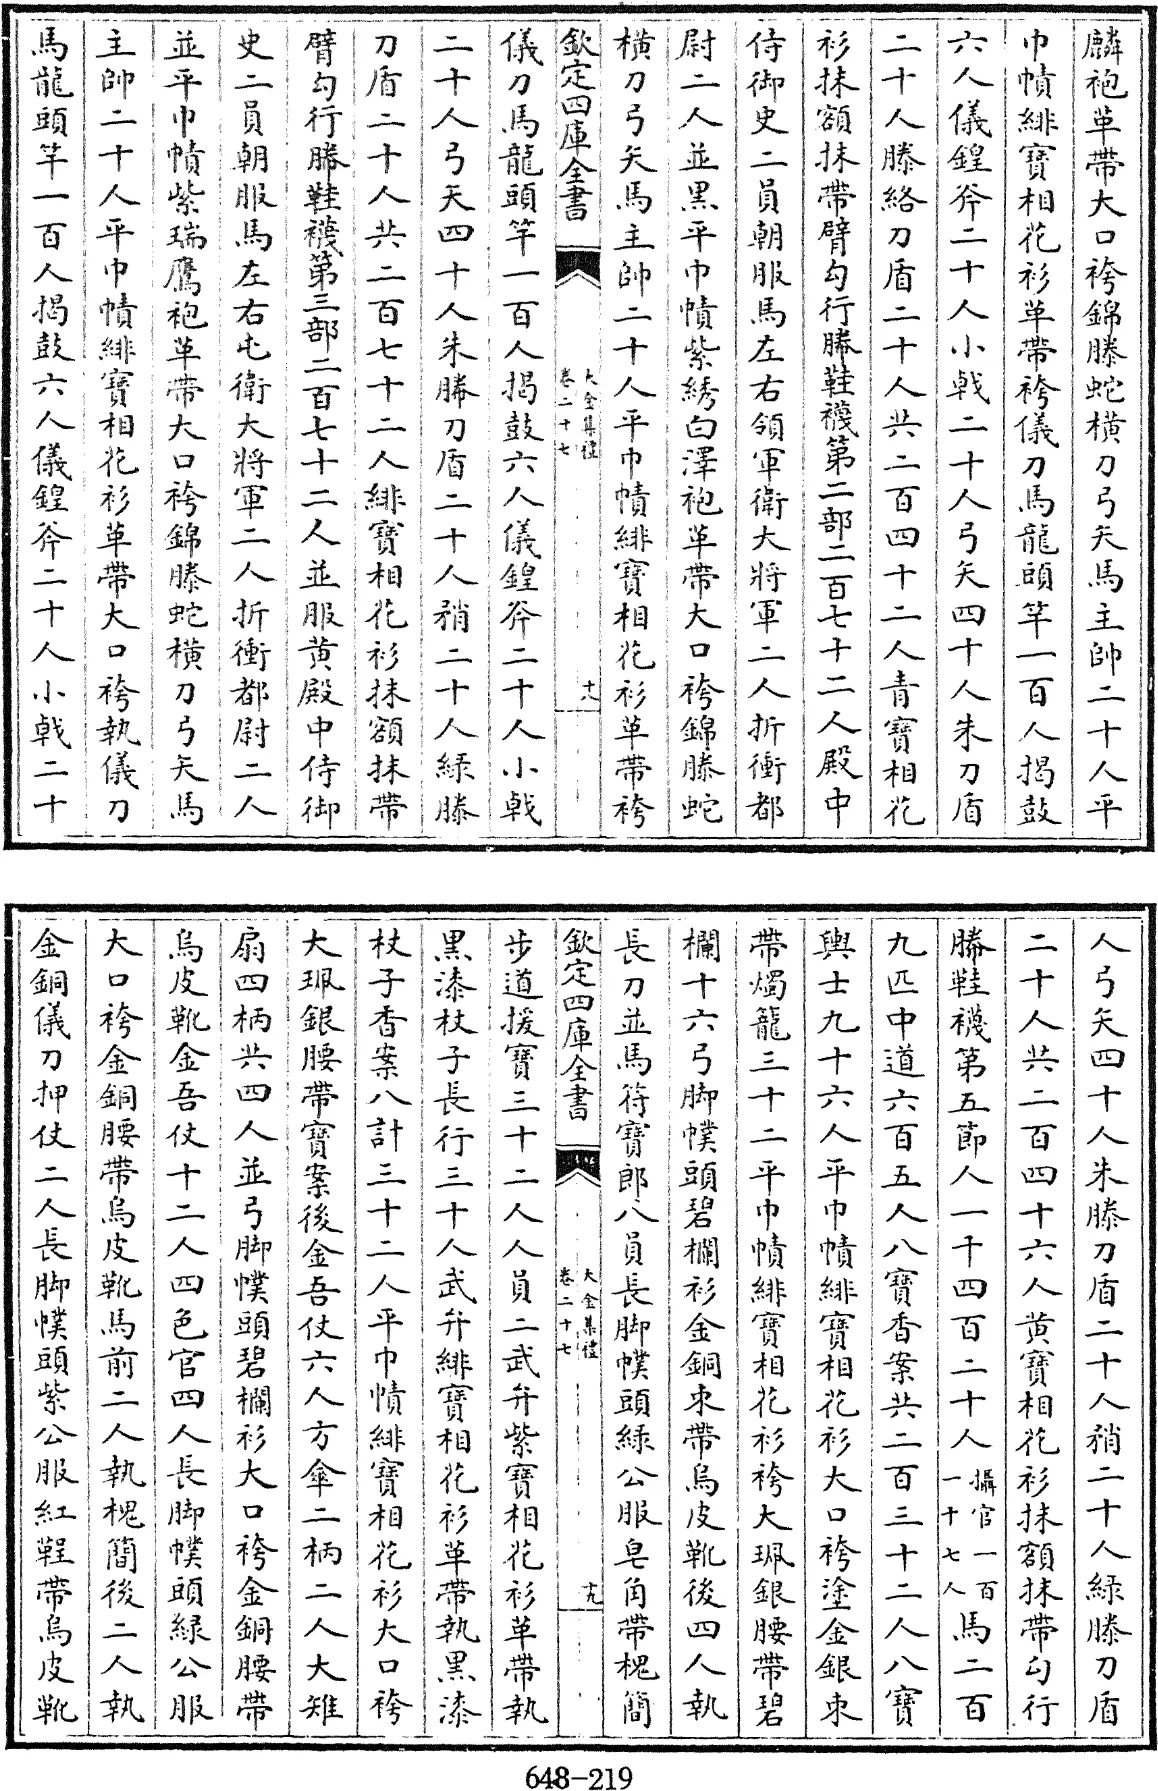 麟袍革帶大口袴錦螣蛇橫刀弓矢馬主帥二十人平
巾幘緋寶相花衫革帶袴儀刀馬龍頭竿一百人揭鼓
六人儀鍠斧二十人小戟二十人弓矢四十人朱刀盾
二十人滕絡刀盾二十人共二百四十二人青寶相花
衫抹額抹帶臂勾行縢鞋襪第二部二百七十二人殿中
侍御史二員朝服馬左右領軍衛大將軍二人折衝都
尉二人並黑平巾幘紫綉白澤袍革帶大口袴錦螣蛇
橫刀弓矢馬主帥二十人平巾幘緋寶相花衫革帶袴
欽定四庫全書
大金集禮
卷二十七
十八
儀刀馬龍頭竿一百人揭鼓六人儀鍠斧二十人小戟
二十人弓矢四十人朱縢刀盾二十人矟二十人綠縢
刀盾二十人共二百七十二人緋寶相花衫抹額抹帶
臂勾行縢鞋襪第三部二百七十二人並服黃殿中侍御
史二員朝服馬左右屯衛大將軍二人折衝都尉二人
並平巾幘紫瑞鷹袍革帶大口袴錦螣蛇橫刀弓矢馬
主帥二十人平巾幘緋寶相花衫革帶大口袴執儀刀
馬龍頭竿一百人揭鼓六人儀鍠斧二十人小戟二十
人弓矢四十人朱縢刀盾二十人矟二十人綠縢刀盾
二十人共二百四十六人黃寶相花衫抹額抹帶勾行
縢鞋襪第五節人一千四百二十人攝官一百一十七人馬二百
九匹中道六百五人八寶香案共二百三十二人八寶
輿士九十六人平巾幘緋寶相花衫大口袴塗金銀束
帶燭籠三十二平巾幘緋寶相花衫袴大珮銀腰帶碧
欄十六弓脚幞頭碧欄衫金銅束帶烏皮靴後四人執
長刀並馬符寶郎八員長脚幞頭綠公服皂角帶槐簡
欽定四庫全書
大金集禮
卷二十七
十九
步道援寶三十二人人員二武弁紫寶相花衫革帶執
黑漆杖子長行三十人武弁緋寶相花衫革帶執黑漆
杖子香案八計三十二人平巾幘緋寶相花衫大口袴
大珮銀腰帶寶案後金吾仗六人方傘二柄二人大雉
扇四柄共四人並弓脚幞頭碧欄衫大口袴金銅腰帶
烏皮靴金吾仗十二人四色官四人長脚幞頭綠公服
大口袴金銅腰帶烏皮靴馬前二人執槐簡後二人執
金銅儀刀押仗二人長脚幞頭紫公服紅鞓帶烏皮靴
648-219